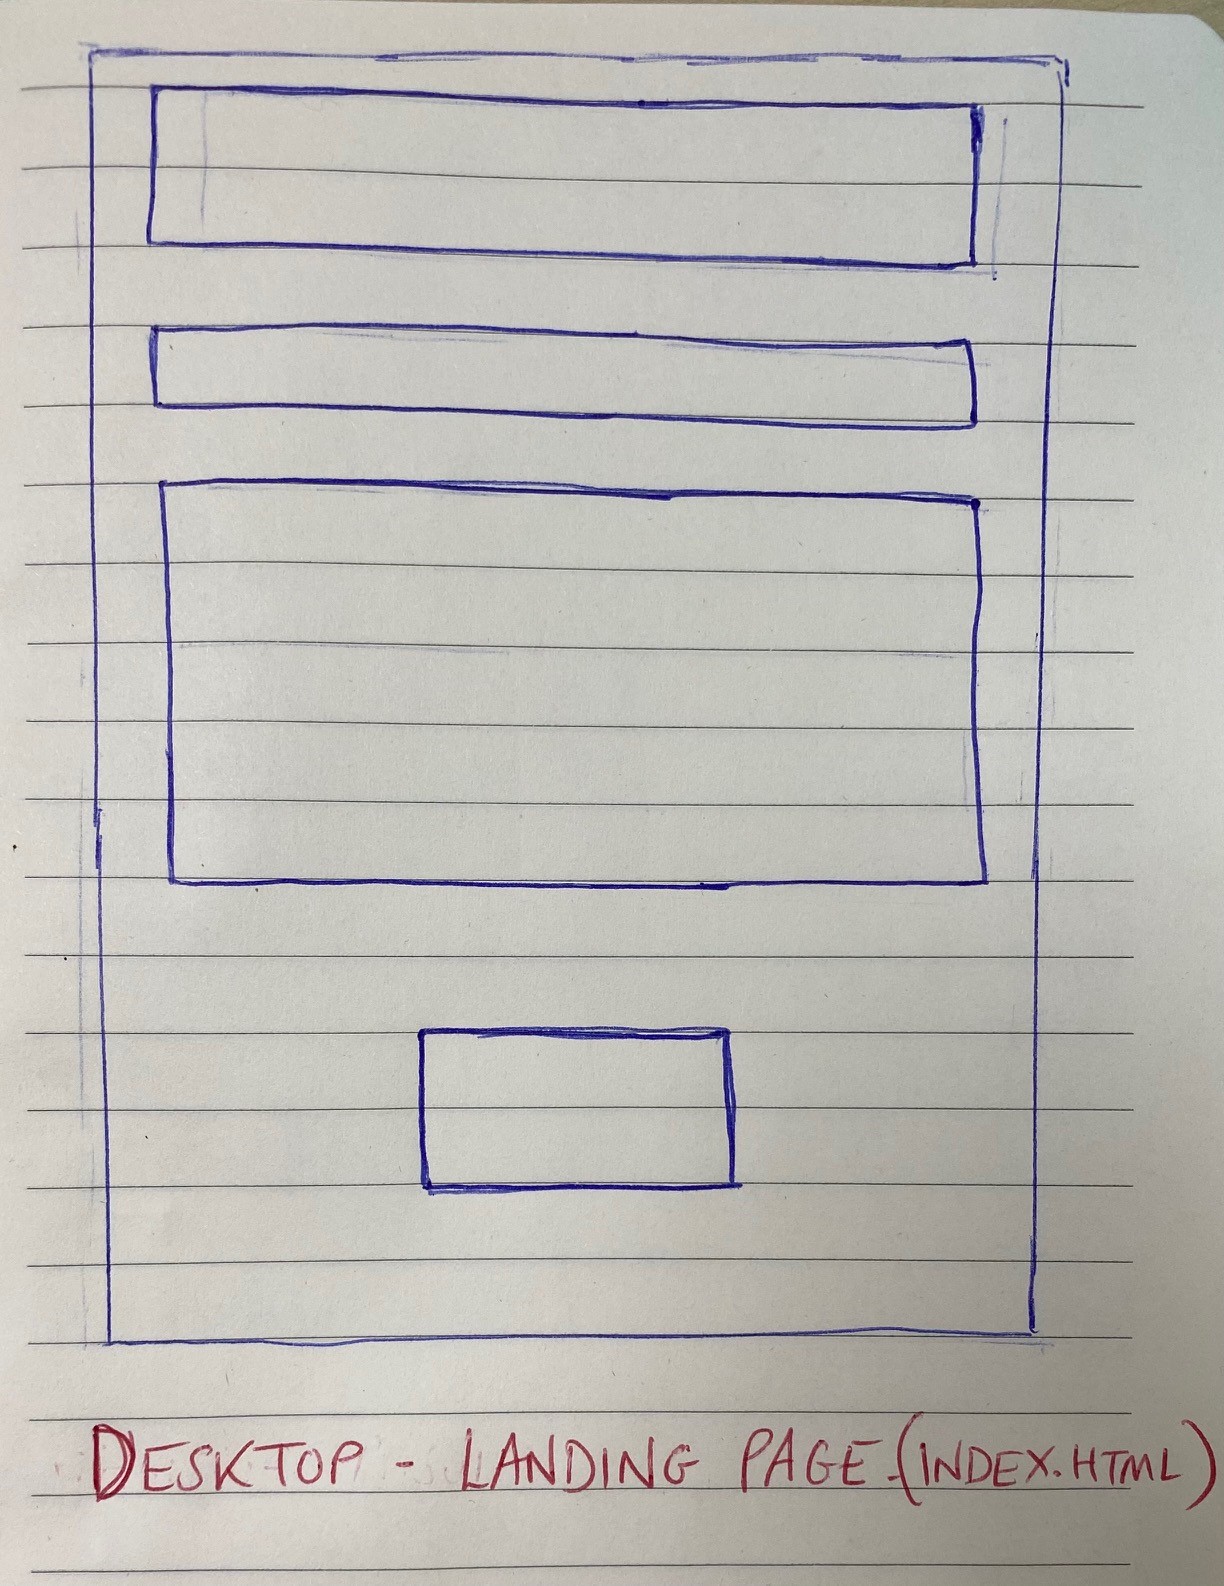 DESKTOP - LANDING PAGE.(INDEX.HTML)